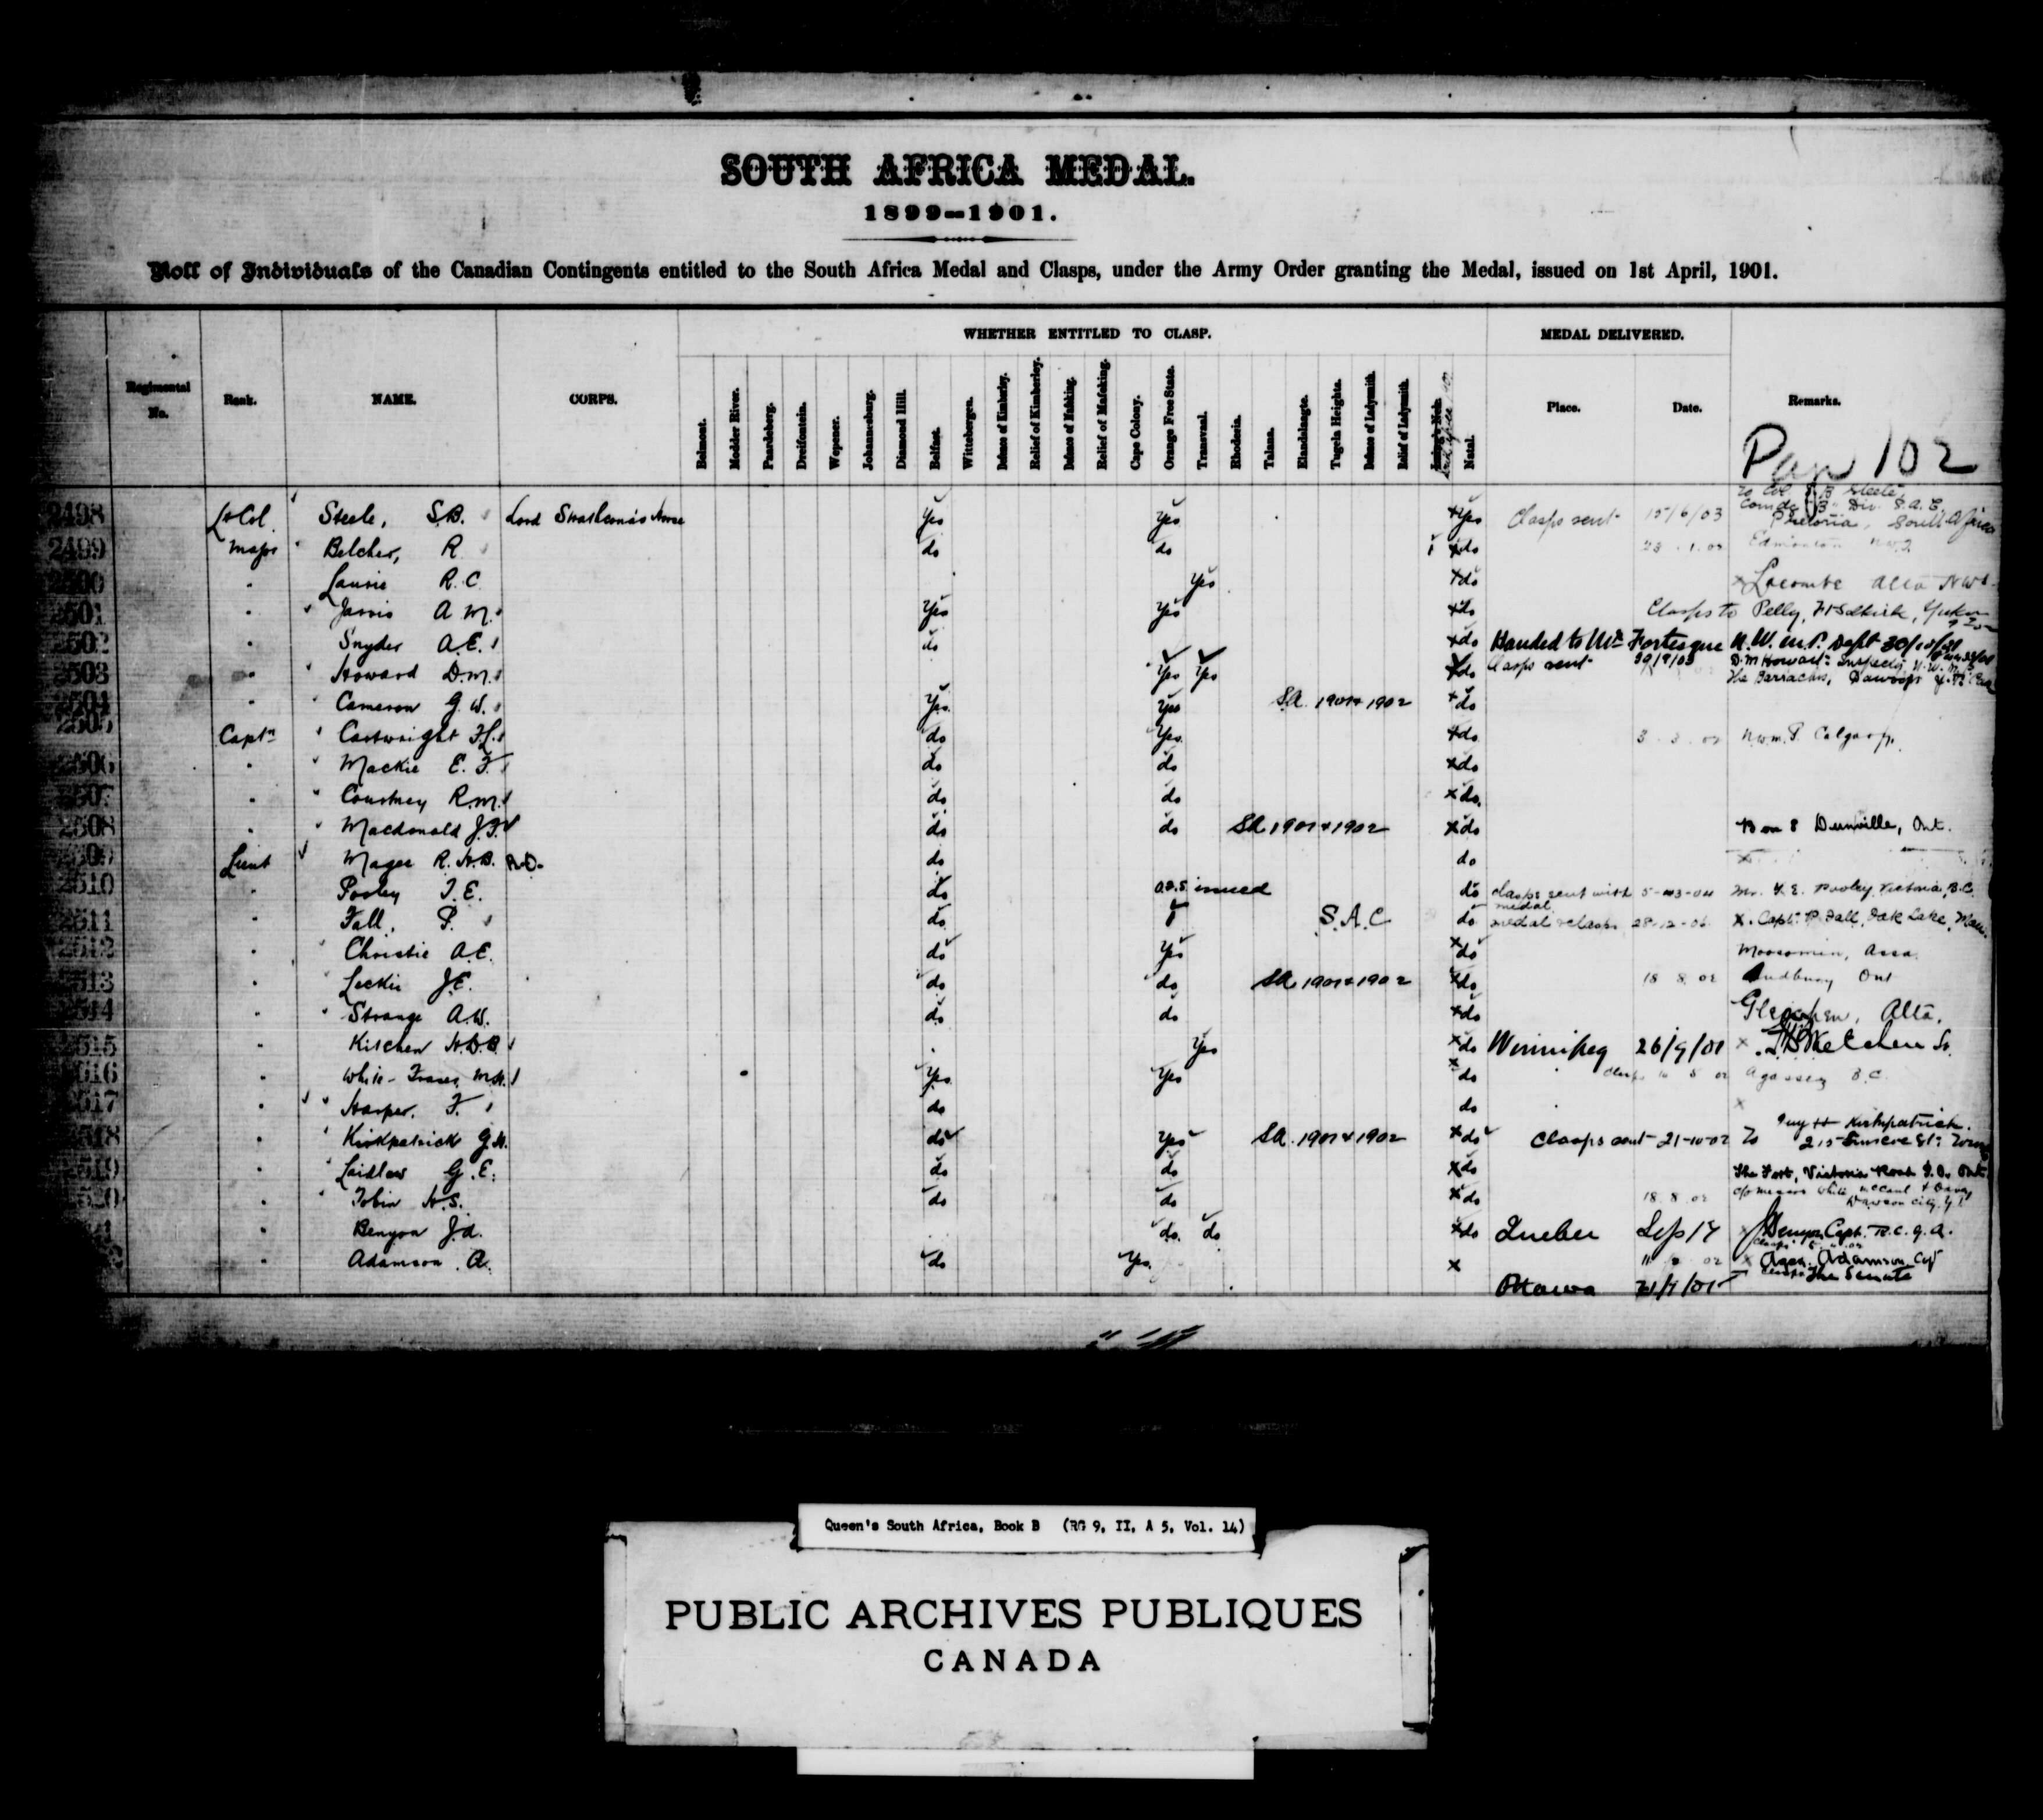 SOUTH AFRICA MEDAL.
1899--1901.
Roll of Individuals of the Canadian Contingents entitled to the South Africa Medal and Clasps, under the Army Order granting the Medal, issued on 1st April, 1901.
Regimental No. Rank. NAME. CORPS. WHETHER ENTITLED TO CLASP. MEDAL DELIVERED. Remarks.
Belmont. Modder River. Paardeberg. Dreifontein. Wepener. Johannesburg. Diamond Hill. Belfast. Wittebergen. Defense of Kimberley. Relief of Kimberley. Defense of Mafeking. Relief of Mafeking. Cape Colony. Orange Free State. Transvaal. Rhodesia. Talana. Elandslaagte. Tugela Heights. Defense of Ladysmith. Relief of Ladysmith. Natal. Place. Date.
102
2498 Lt Col. Steele, S.B. Lord Strathcona's Horse Yes Yes Yes Clasps sent 15/6/03 To Col S B Steele, Comdg "B" Div. S.A.C. Pretoria, South Africa
2499 Major Belcher, R do do do Edmonton
2500 " Laurie R.C. Yes do Lacombe Alta
2501 " Jarvis A.M. Yes Yes do Clasps to Pelly, Ft Selkirk, Yukon
2502 " Snyder A.E. do do Handed to Mr Fortesque N.W.M.P. Dept
2503 " Howard D.M. Yes Yes do Clasps sent The Barracks, Dawson
2504 " Cameron G.W. Yes Yes SA. 1901 & 1902 do
2505 Captn Cartwright F.L. do Yes do N.W.M.P. Calgary
2506 " Mackie E.F. do do do
2507 " Courtney R.M. do do do
2508 " Macdonald J.F. do do SA 1901 & 1902 do Box 8 Dunville, Ont.
2509 Lieut Magee R.H.B. do do
2510 " Pooley T.E. do issued do clasps sent with medal Pooley Victoria, B.C.
2511 " Fall, P. do S.A.C do medal & clasps 28-12-06 Capt. P. Fall, Oak Lake, Man.
2512 " Christie A.E. do Yes do Moosomin, Assa.
2513 " Leckie J.E. do do SA 1901 & 1902 do 18 8 02 Sudbury Ont
2514 " Strange A.W. do do do Gleichen, Alta.
2515 " Kitchen H.D.B. Yes do Winnipeg 26/9/01
2516 " White-Fraser M.H. Yes Yes do Clasps Agassiz B.C.
2517 " Harper. F. do do
2518 " Kirkpatrick G.H. do Yes SA. 1901 & 1902 do Clasps sent 21-10-02 To Guy H Kirkpatrick. 215 Simcoe St.
2519 " Laidlaw G.E. do do do The Fort, Victoria Road P.O. Ont.
2520 " Tobin H.S. do do do 18. 8. 02 Dawson City Y.T.
" Benyon J.A. do. do do Quebec Sep 17 Benyon Capt. R.C.G.A.
" Adamson A. do Yes Agar Adamson Capt
Ottawa The Senate
Queen's South Africa, Book B (RG 9, II, A 5, Vol. 14)
PUBLIC ARCHIVES PUBLIQUES
CANADA